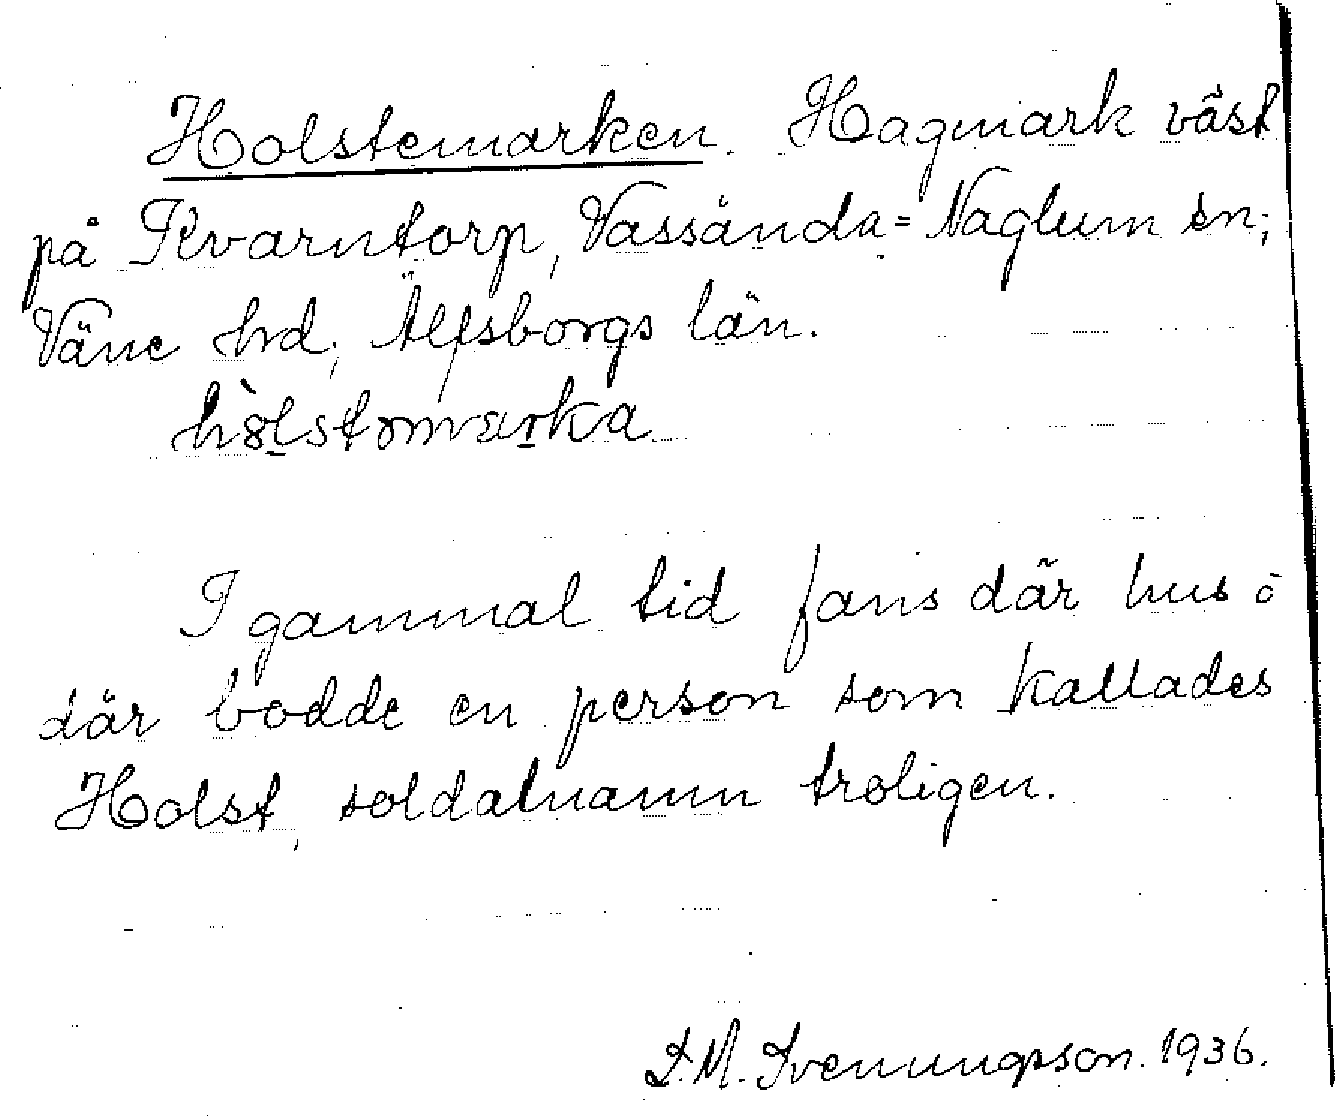 Holstemarken. Hagmark väst
på Kvarntorp, Vassända=Naglum sn;
Väne hd; Älfsborgs län.
hòlstomarka
I gammal tid fans där hus o
där bodde en person som kallades
Holst, soldatnamn troligen.
D.M. Svenungson. 1936.